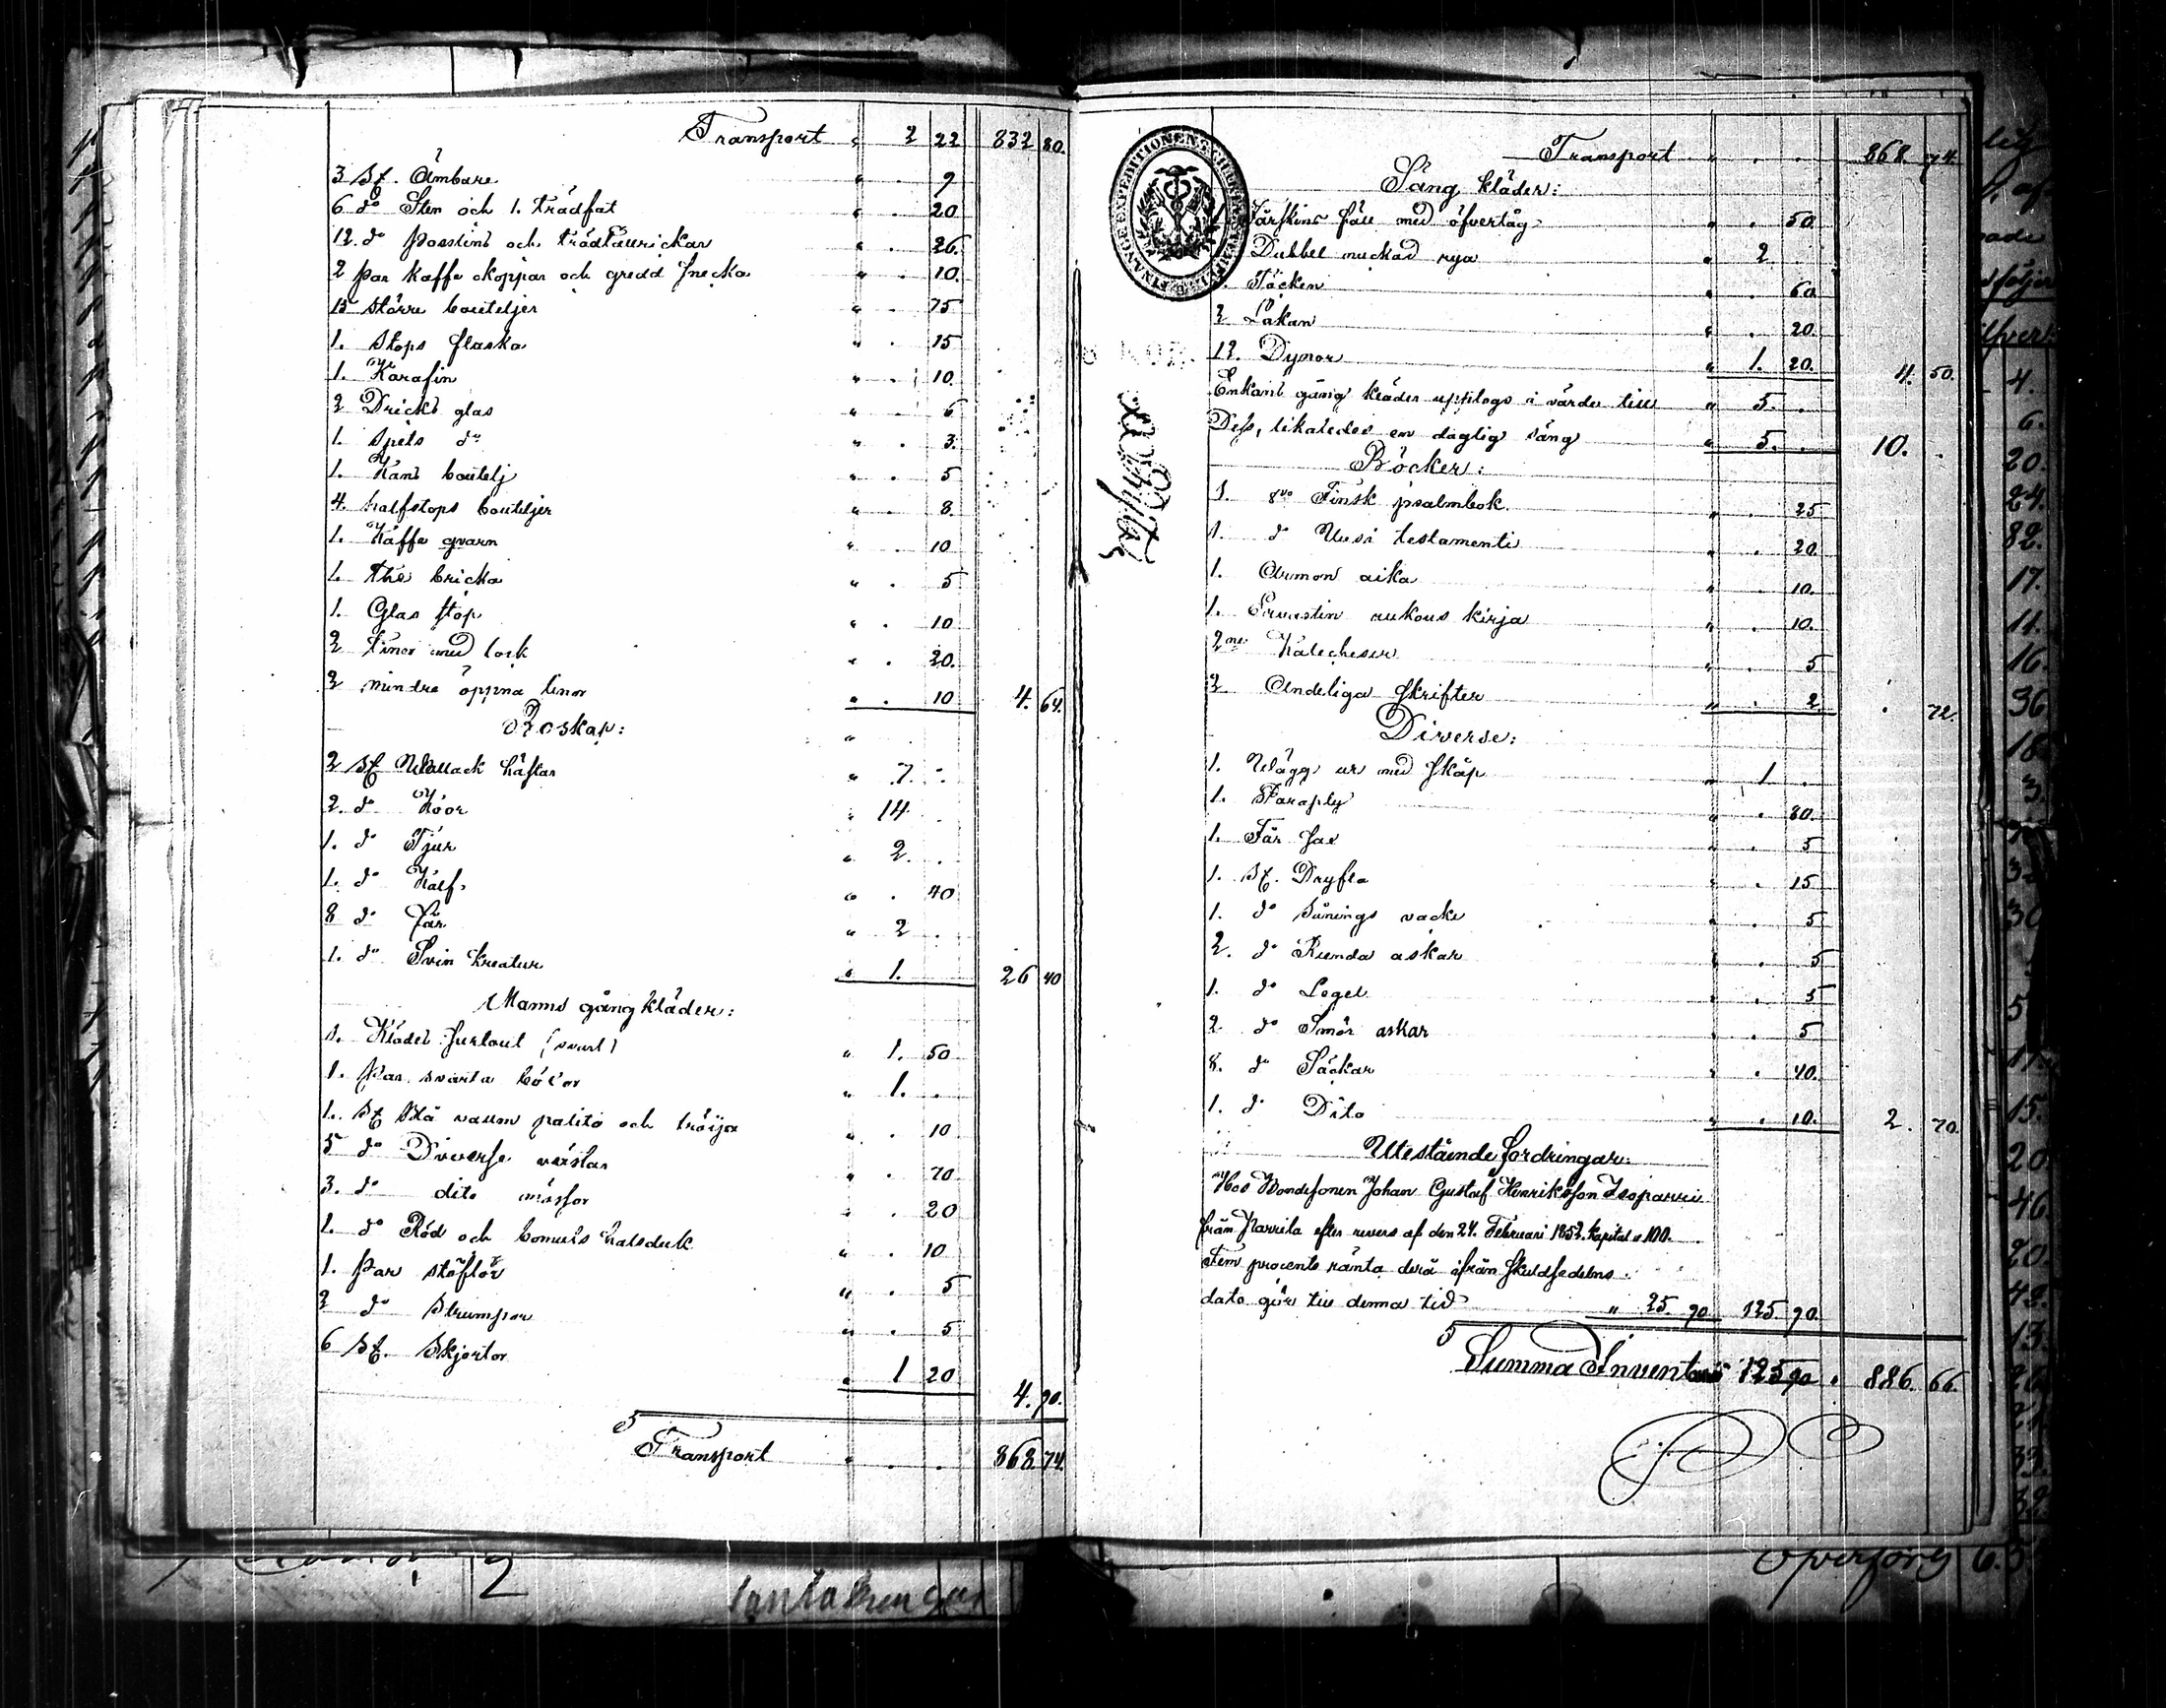 Transport " 2 22 832 80.
3 st. Ämbare " . 9
6 do Sten och 1. trädfat " . 20
12. do Posslins och trädtallrickar " . 26.
2 par kaffe skoppar och gredd snecka " . 10.
15 större bouteljer " . 75
1. Stops flaska " . 15
1. Karafin " . 10
2 Dricks glas " . 6
1. Spets do " . 3.
1. Kans boutelj " . 5
4. halfstops bouteljer " . 8.
1. Kaffe qvarn " . 10
1. The bricka " . 5
1. Glas stop " . 10
2 tinor med lock " . 20.
2 mindre öppna tinor " . 10 4. 64.
Boskap:
2 st Wallack hästar " 7. .
2. do Koor " 14. .
1. do Tjur " 2. .
1. do Kalf " . 40
8 do Får " 2 .
1. do Svin kreatur " 1. 26 40
Manns gångkläder:
1. Klädes surtout (svart) " 1. 50
1. Par svarta böxor " 1. .
1. st Blå vallm palito och tröija " . 10
5 do Diverse västar " . 70
3. do dito mössor " . 20
1. do Röd och bomuls halsduk " . 10
1. Par stöflor " . 5
2 do Strumpor " . 5
6 st. Skjortor " 1 20 4. 90.
Transport " . . 868 74.
Transport " . . 868. 74
Säng kläder:
Fårskins fäll med öfvertåg " . 50.
Dubbel nuckad rya " 2
Täcken " . 60
2 Lakan " . 20.
12. Dynor " 1. 20. 4. 50.
Enkans gång kläder upptogs i värde till " 5. .
Dess, likaledes en daglig säng " 5. . 10. .
Böcker:
1. 8vo Finsk psalmbok " . 25
1. do Uusi testamenti " . 20
1. Armon aika " . 10.
1. rukous kirja " . 10.
2ne Katecheser " . 5
2 Andeliga skrifter " . 2 . 72.
Diverse:
1. Wägg ur med skåp " 1 .
1. Paraply " . 80.
1. Får sax " . 5
1. st. Dryfta " . 15
1. do Sånings vacka " . 5
2. do Runda askar " . 5
1. do Legel " . 5
2 do Smör askar " . 5
8. do Säckar " . 40.
1. do Dito " . 10. 2. 70.
Utestående fordringar:
Hos Bondesonen Johan Gustaf Henriksson Isoparri
från Narrila efter revers af den 24. Februari 1852. kapital " 100.
Fem procents ränta derå ifrån skuldsedelns
dato gör till denna tid " 25 90 125 90.
Summa Inventarii 125 90 . 886. 66.